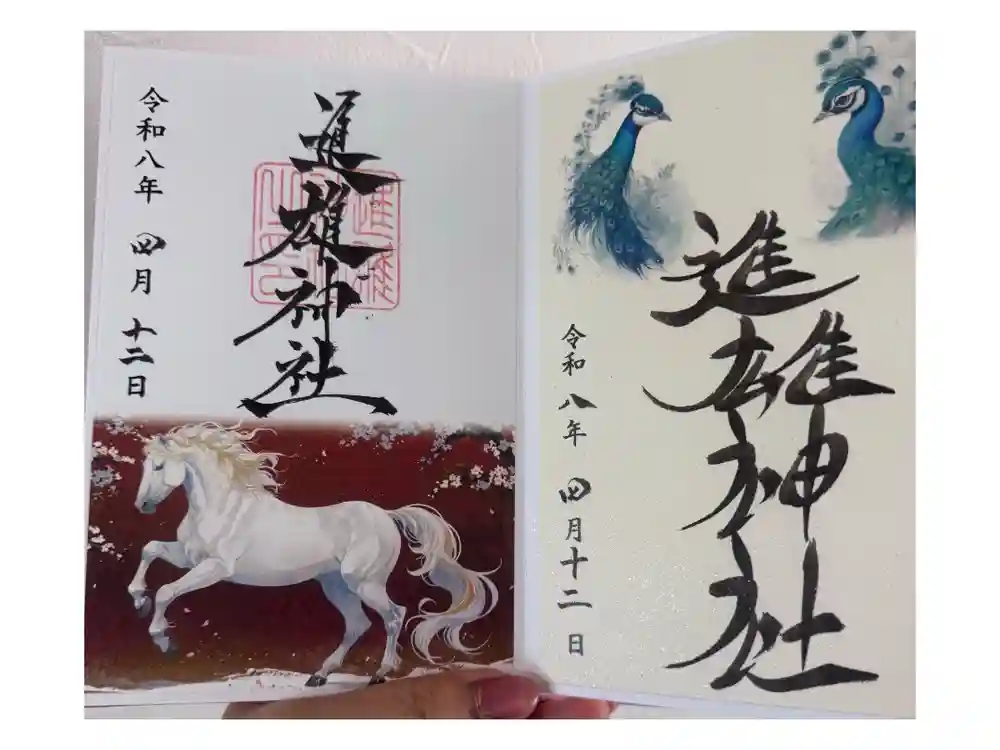 進雄神社
令和八年 四月十二日
進雄神社
令和八年 四月 十二日